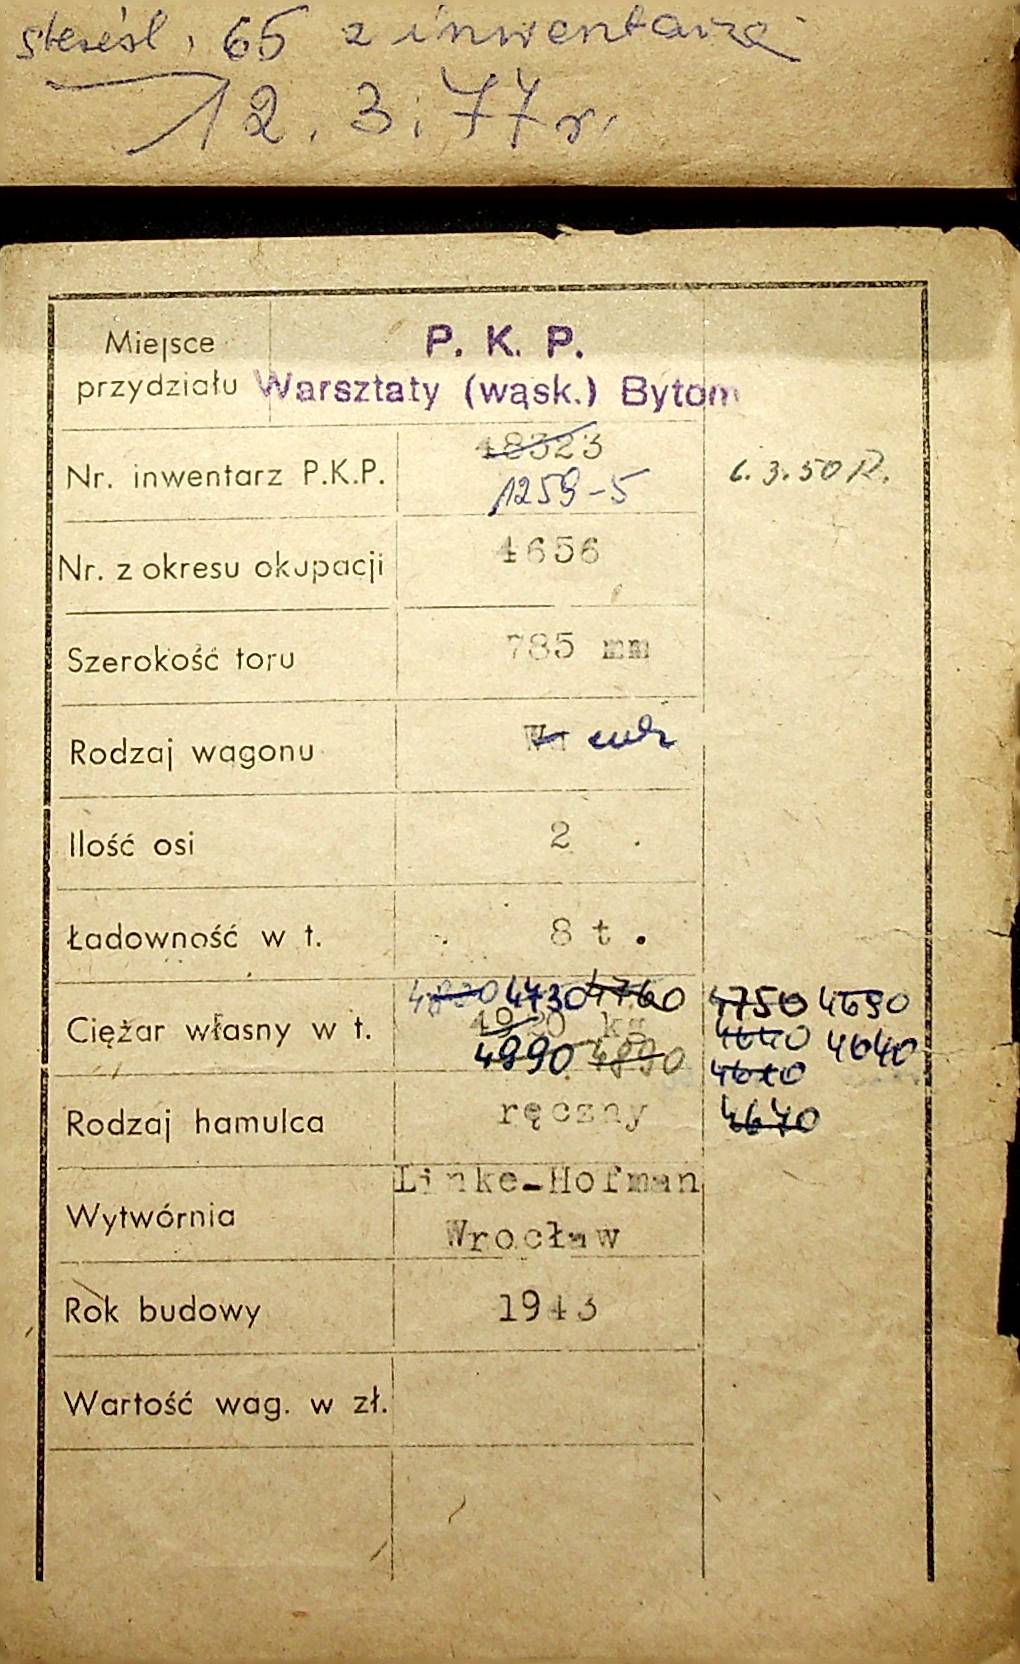 65 z inwentarza
12.3.77 r.
Miejsce przydziału
P. K. P.
Warsztaty (wąsk.) Bytom
Nr. inwentarz P.K.P.
48323
1259-5
6.3.50 R.
Nr. z okresu okupacji
4656
Szerokość toru
785 mm
Rodzaj wagonu
Ilość osi
2
Ładowność w t.
8 t.
Ciężar własny w t.
4730 4760
4920 kg
4990 4890
4750 4690
4640 4640
4640
Rodzaj hamulca
ręczny
Wytwórnia
Linke-Hofman
Wrocław
Rok budowy
1943
Wartość wag. w zł.